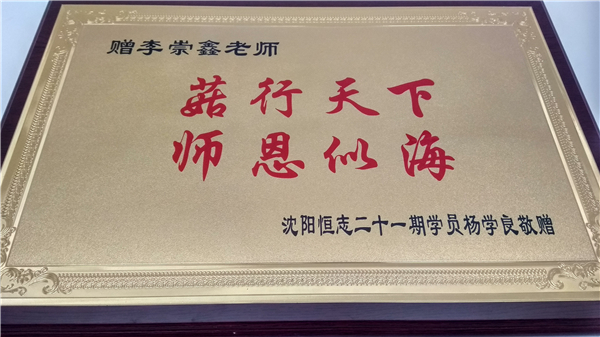 赠李崇鑫老师
菇行天下
师恩似海
沈阳恒志二十一期学员杨学良敬赠